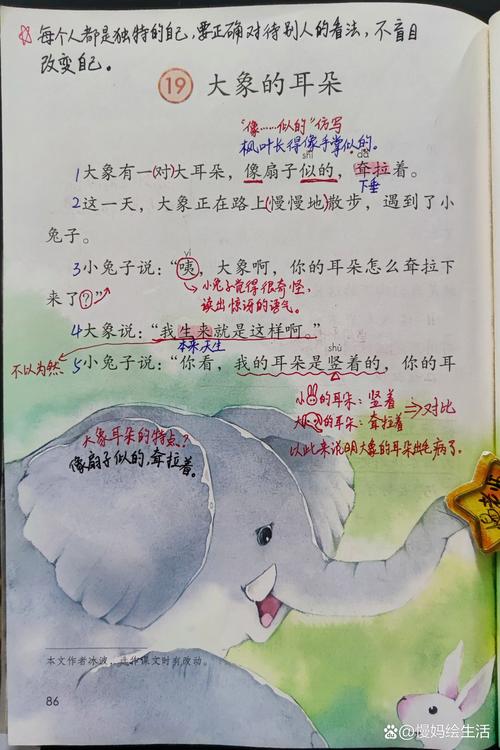 每个人都是独特的自己，要正确对待别人的看法，不盲目
改变自己。
19 大象的耳朵
"像……似的"仿写
枫叶长得像手掌似的。
shì dā
1大象有一(对)大耳朵，像扇子似的，耷拉着。
下垂
2这一天，大象正在路上(慢慢地)散步，遇到了小
兔子。
yí
3小兔子说："咦，大象啊，你的耳朵怎么耷拉下
来了？"
小兔子觉得很奇怪，
读出惊讶的语气。
4大象说："我生来就是这样啊。"
本来天生
不以为然
shù
5小兔子说："你看，我的耳朵是竖着的，你的耳
小的耳朵：竖着
大的耳朵：耷拉着
⇒对比
以此来说明大象的耳朵出毛病了。
大象耳朵的特点？
像扇子似的，耷拉着。
本文作者冰波，选作课文时有改动。
86
@慢妈绘生活